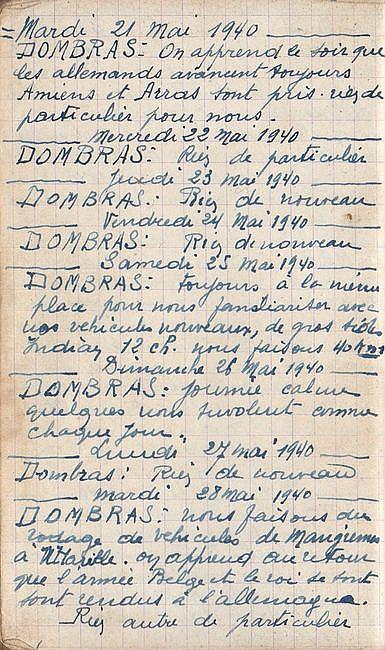 = Mardi 21 Mai 1940
DOMBRAS:- On apprend le soir que
les allemands avancent toujours
Amiens et Arras sont pris. rien de
particulier pour nous.
Mercredi 22 Mai 1940
DOMBRAS: Rien de particulier
Jeudi 23 Mai 1940
DOMBRAS: Rien de nouveau
Vendredi 24 Mai 1940
DOMBRAS: Rien de nouveau
Samedi 25 Mai 1940
DOMBRAS: toujours à la même
place pour nous familiariser avec
nos vehicules nouveaux, de gros sides
Indian 12 ch. nous faisons 40 kms
Dimanche 26 Mai 1940
DOMBRAS: journée calme
quelques nous survolent comme
chaque jour.
Lundi 27 mai 1940
Dombras: Rien de nouveau
mardi 28 Mai 1940
DOMBRAS: nous faisons du
rodage de vehicules de Mangiennes
à . on apprend au retour
que l'armée Belge et le roi se sont
sont rendus à l'allemagne.
Rien autre de particulier